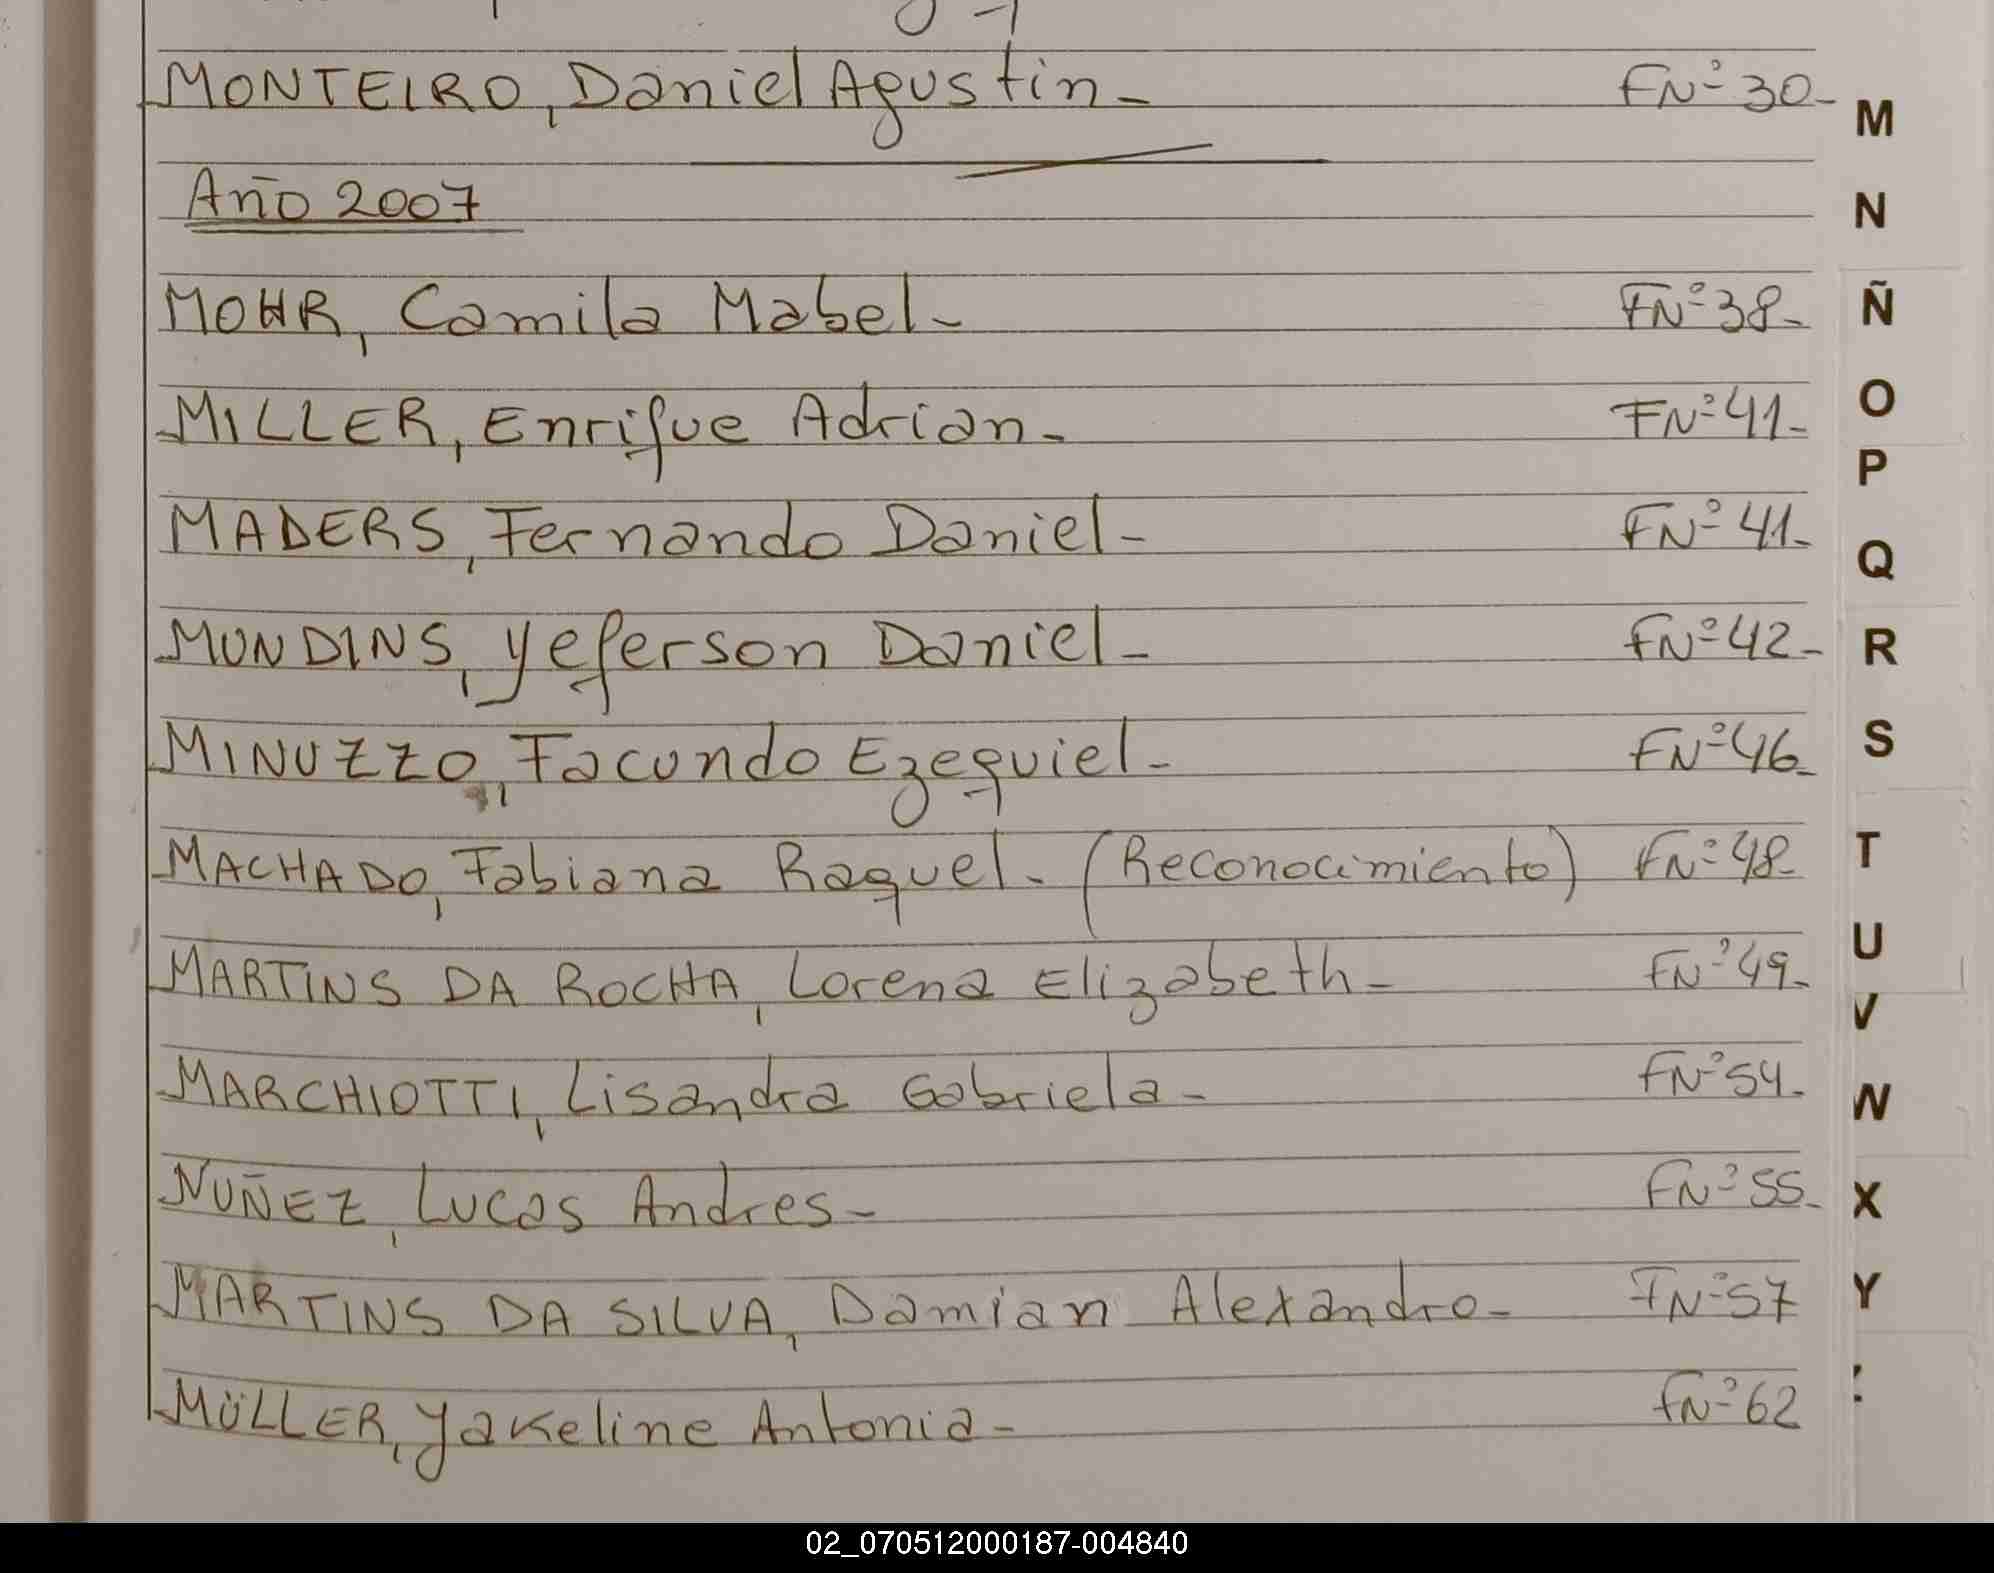 MONTEIRO, Daniel Agustin- FNº 30-
Año 2007
MOHR, Camila Mabel- FNº 38-
MILLER, Enrique Adrian- FNº 41-
MADERS, Fernando Daniel- FNº 41-
MUNDINS, Yeferson Daniel- FNº 42-
MINUZZO, Facundo Ezequiel- FNº 46-
MACHADO, Fabiana Raquel- (Reconocimiento) FNº 48-
MARTINS DA ROCHA, Lorena Elizabeth- FNº 49-
MARCHIOTTI, Lisandra Gabriela- FNº 54-
NUÑEZ, Lucas Andres- FNº 55-
MARTINS DA SILVA, Damian Alexandro- FNº 57
MÜLLER, Yakeline Antonia- FNº 62
M
N
Ñ
O
P
Q
R
S
T
U
V
W
X
Y
02_070512000187-004840